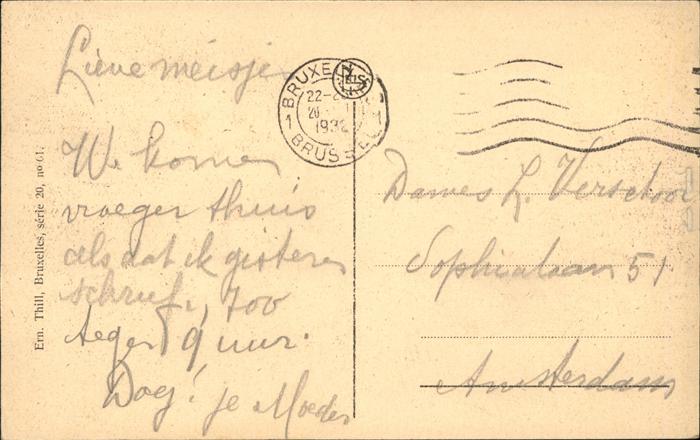 Lieve meisje
We komen
vroeger thuis
als dat ik gisteren
schreef, zoo
tegen 9 uur.
Dag! je Moeder
Ern. Thill, Bruxelles, série 20, no 61.
BRUXE
22-2
1932
1 BRUSSEL 1
Dames L. Verschoor
Sophialaan 51
Amsterdam